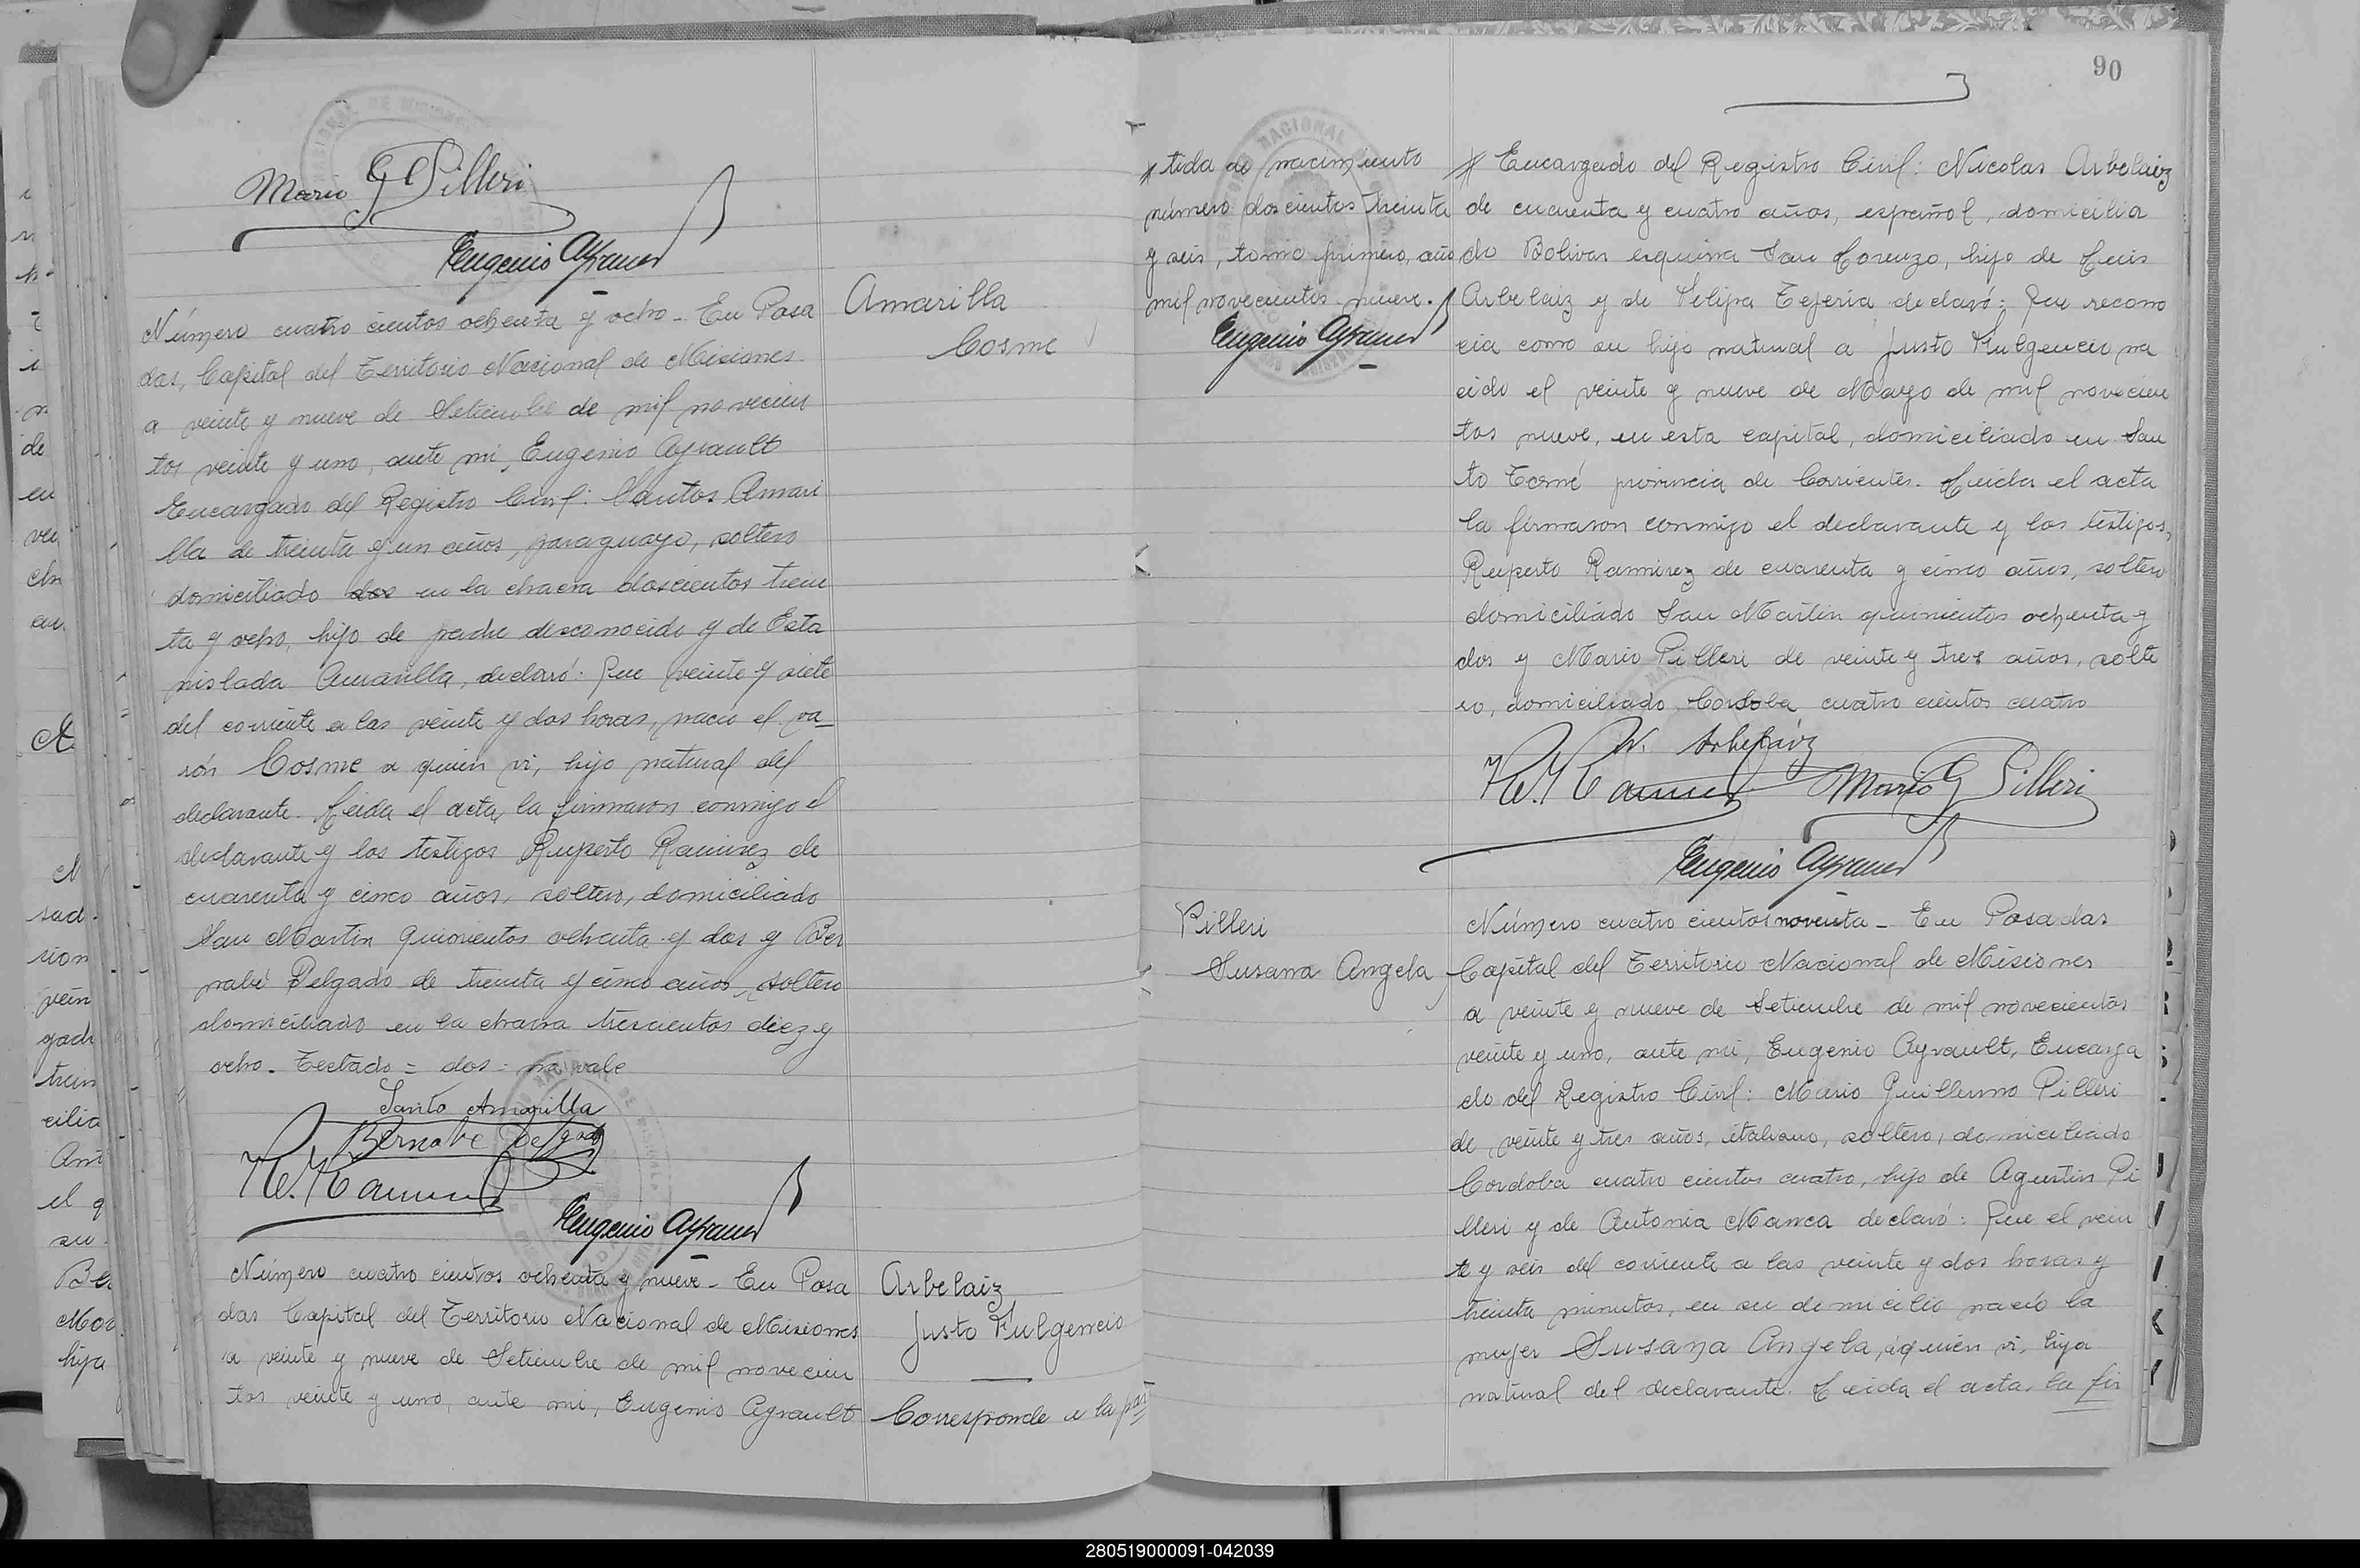 Mario G Pilleri
Eugenio Ayrault
Número cuatro cientos ochenta y ocho - En Posa
das, Capital del Territorio Nacional de Misiones
a veinte y nueve de Setiembre de mil novecien
tos veinte y uno, ante mi, Eugenio Ayrault
Encargado del Registro Civil: Santos Amari
lla de treinta y un años, paraguayo, soltero
domiciliado dos en la chacra doscientos trein
ta y ocho, hijo de padre desconocido y de Esta
nislada Amarilla, declaró: Que veinte y siete
del corriente a las veinte y dos horas, nació el va_
rón Cosme a quien vi, hijo natural del
declarante. Leida el acta, la firmaron conmigo el
declarante y los testigos Ruperto Ramirez de
cuarenta y cinco años, soltero, domiciliado
San Martin quinientos ochenta y dos y Ber
nabé Delgado de treinta y cinco años, soltero
domiciliado en la chacra trescientos diez y
ocho. Testado = dos = no vale
Amarilla
Cosme
Santo Amarilla
Bernabe Delgado
Eugenio Ayrault
Número cuatro cientos ochenta y nueve - En Posa
das Capital del Territorio Nacional de Misiones
a veinte y nueve de Setiembre de mil novecien
tos veinte y uno, ante mi, Eugenio Ayrault
Arbelaiz
Justo Fulgencio
Corresponde a la par
90
# tida de nacimiento
número doscientos treinta
y seis, tomo primero, año
mil novecientos nueve.
Eugenio Ayrault
# Encargado del Registro Civil: Nicolas Arbelaiz
de cuarenta y cuatro años, español, domicilia
do Bolivar esquina San Lorenzo, hijo de Luis
Arbelaiz y de Felipa Tejeria declaró: Que recono
cia como su hijo natural a Justo Fulgencio na
cido el veinte y nueve de Mayo de mil novecien
tos nueve, en esta capital, domiciliado en San
to Tomé provincia de Corrientes. Leida el acta
la firmaron conmigo el declarante y los testigos,
Ruperto Ramirez de cuarenta y cinco años, soltero
domiciliado San Martin quinientos ochenta y
dos y Mario Pilleri de veinte y tres años, solte
ro, domiciliado Cordoba cuatro cientos cuatro
N. Arbelaiz
Mario G Pilleri
Eugenio Ayrault
Pilleri
Susana Angela
Número cuatro cientos noventa - En Posadas
Capital del Territorio Nacional de Misiones
a veinte y nueve de Setiembre de mil novecientos
veinte y uno, ante mi, Eugenio Ayrault, Encarga
do del Registro Civil: Mario Guillermo Pilleri
de veinte y tres años, italiano, soltero, domiciliado
Cordoba cuatro cientos cuatro, hijo de Agustin Pi
lleri y de Antonia Manca declaró: Que el vein
te y seis del corriente a las veinte y dos horas y
treinta minutos, en su domicilio nació la
mujer Susana Angela, a quien vi, hija
natural del declarante. Leida el acta, la fir
280519000091-042039